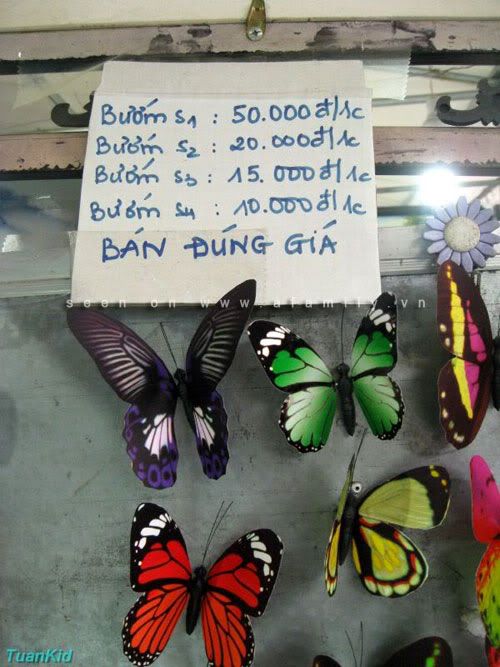 Bướm S1 : 50.000đ/1c
Bướm S2 : 20.000đ/1c
Bướm S3 : 15.000đ/1c
Bướm S4 : 10.000đ/1c
BÁN ĐÚNG GIÁ
seen on www.afamily.vn
TuanKid